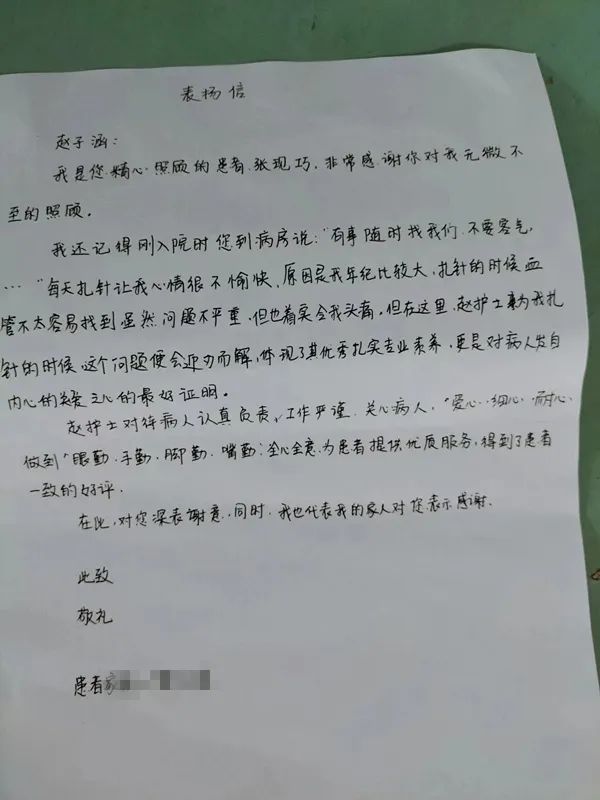 表扬信
赵子涵：
我是您精心照顾的患者张现巧，非常感谢你对我无微不
至的照顾。
我还记得刚入院时您到病房说："有事随时找我们，不要客气，
…"每天扎针让我心情很不愉快，原因是我年纪比较大，扎针的时候血
管不太容易找到虽然问题不严重，但也着实令我头痛，但在这里，赵护士来为我扎
针的时候，这个问题便会迎刃而解，体现了其优秀扎实专业素养，更是对病人发自
内心的关爱之心的最好证明。
赵护士对待病人认真负责，工作严谨，关心病人，"爱心、细心、耐心，
做到"眼勤、手勤、脚勤、嘴勤；全心全意为患者提供优质服务，得到了患者
一致的好评。
在此，对您深表謝意，同时，我也代表我的家人对您表示感谢。
此致
敬礼
患者家